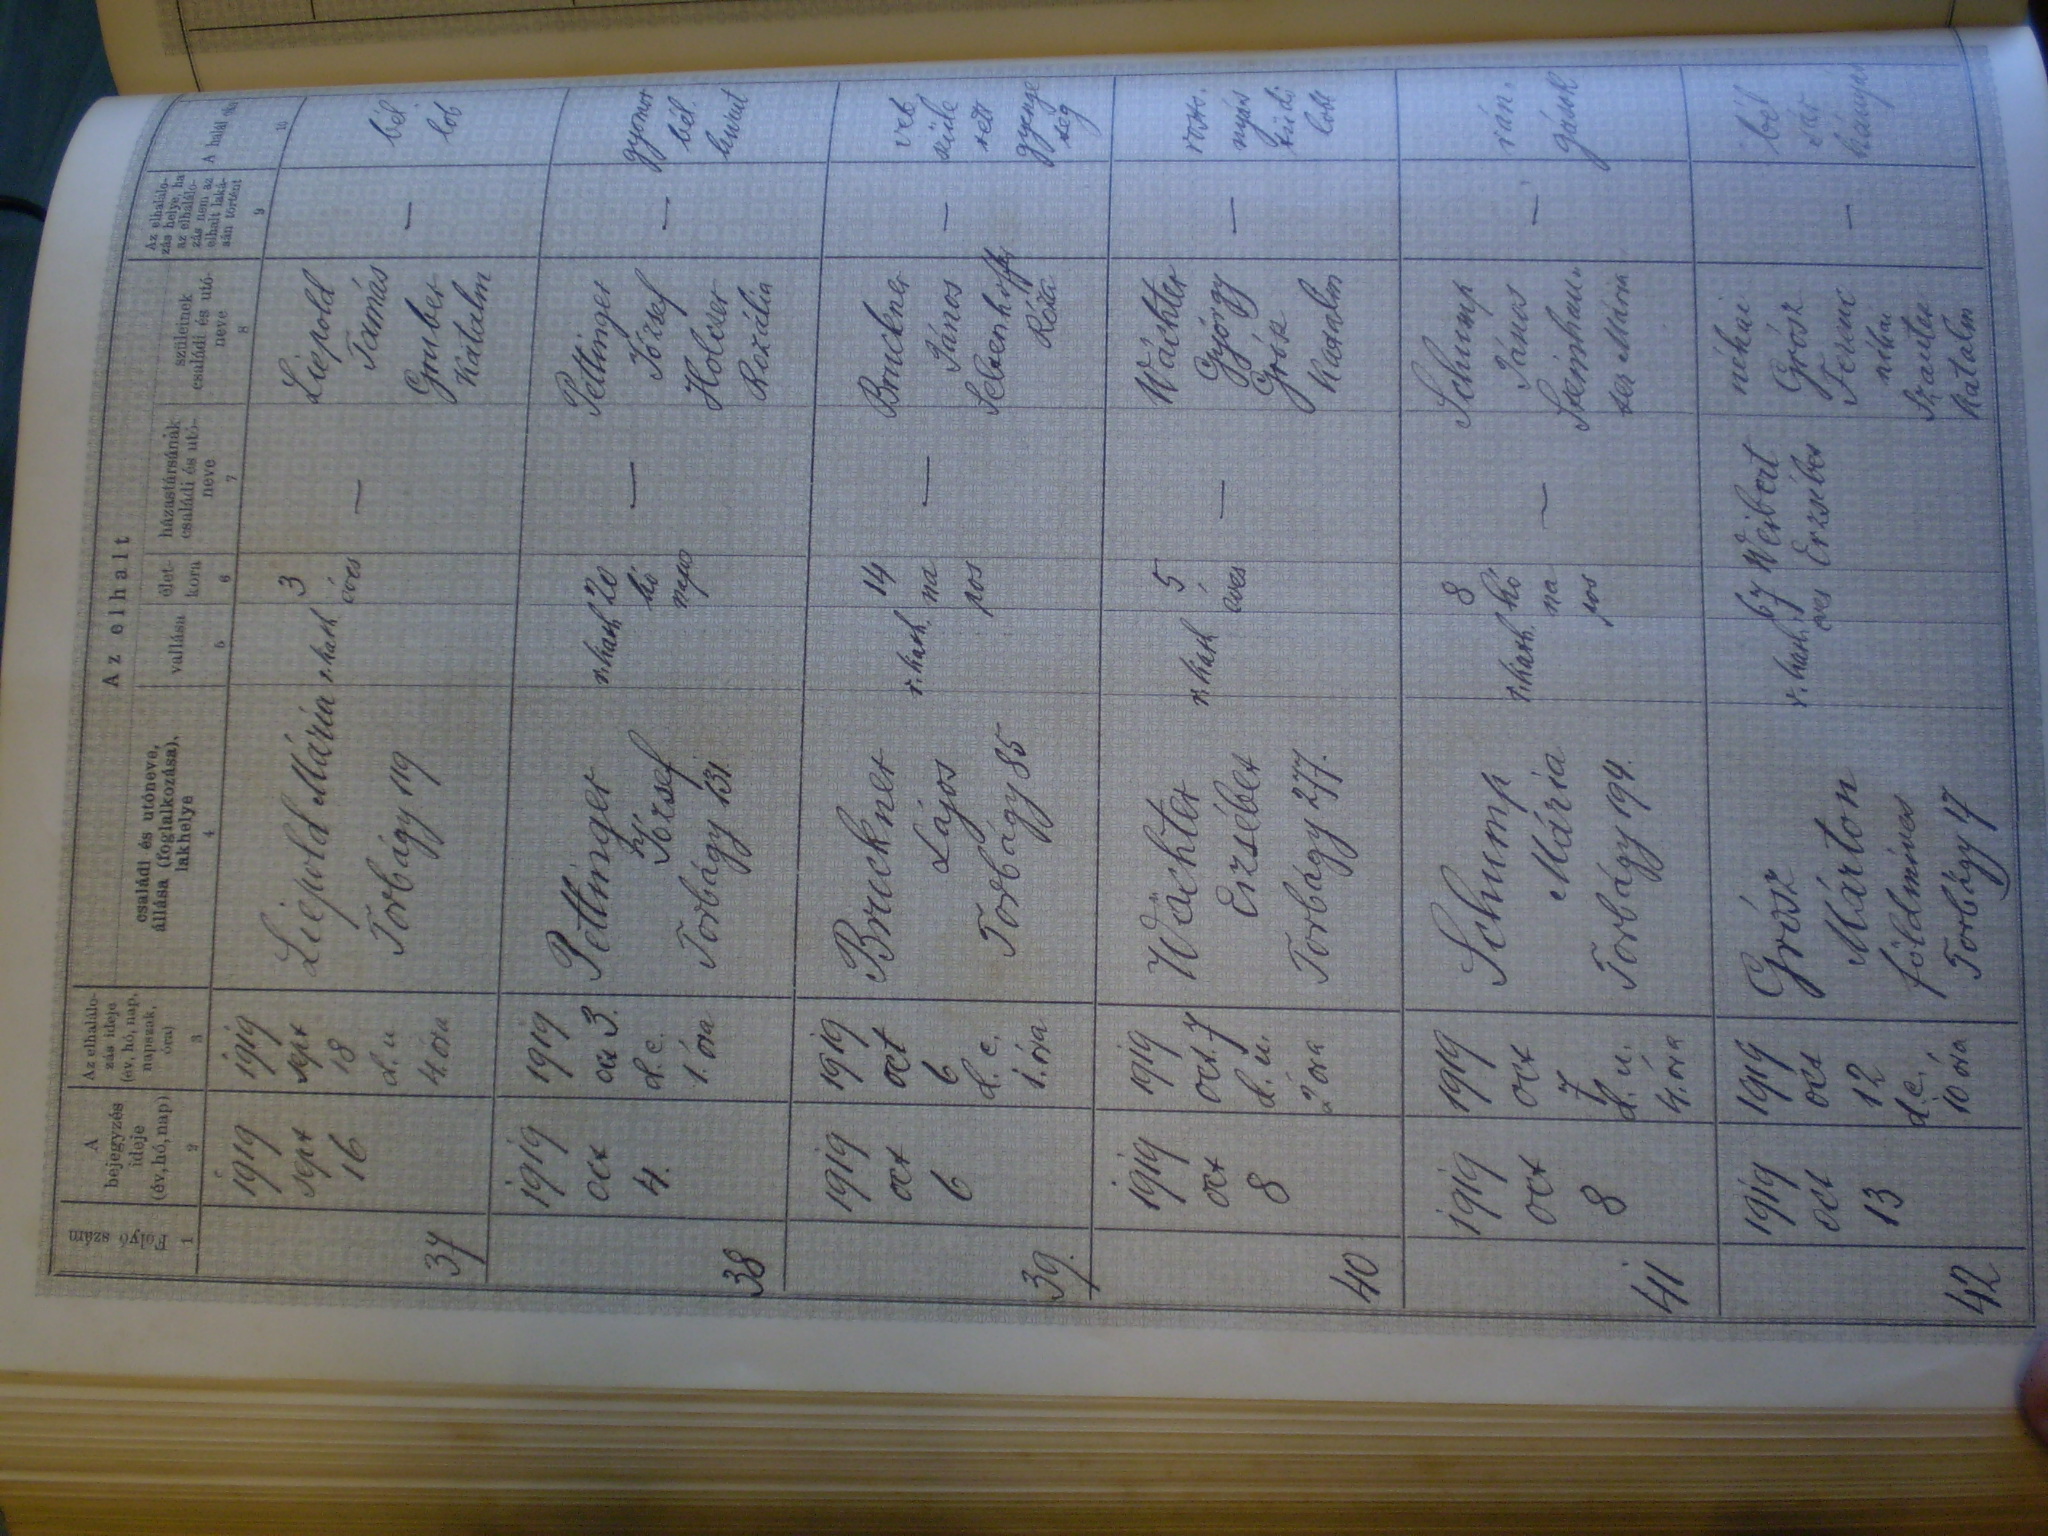 Az elhalt
Folyó szám
A
bejegyzés
ideje
(év, hó, nap)
Az elhalálo-
zás ideje
(év, hó, nap,
napszak,
óra)
családi és utóneve,
állása (foglalkozása),
lakhelye
vallása
élet-
kora
házastársának
családi és utó-
neve
szüleinek
családi és utó
neve
Az elhalálo-
zás helye, ha
az elhalálo-
zás nem az
elhalt laká-
sán történt
A halál oka
1
2
3
4
5
6
7
8
9
10
37
1919
sept
16
1919
sept
18
d. u
4. óra
Liepold Mária
Torbágy 119
r. kath
3
éves
—
Liepold
Tamás
Gruber
Katalin
—
bél
lob
38
1919
oct
4.
1919
oct 3.
d. e.
1. óra
Pettinger
if
József
Torbágy 131.
r. kath
20
hó
napos
—
Pettinger
József
Holczer
Rozália
—
gyomor
bél
hurut
39.
1919
oct
6
1919
oct
6
d. e.
1. óra
Bruckner
Lajos
Torbágy 85
r. kath.
14
na
pos
—
Bruckner
János
Róza
—
vele
szüle
tett
gyenge
ség
40
1919
oct
8
1919
oct. 7
d. u.
2 óra
Wächter
Erzsébet
Torbágy 277.
r. kath
5
éves
—
Wächter
György
Grósz
Katalin
—
41
1919
oct
8
1919
oct
7
d. u.
4. óra
Schump
Mária
Torbágy 194.
r. kath.
8
hó
na
pos
—
Schump
János
Steinhau-
ser Mária
—
rán-
gások
42
1919
oct
13
1919
oct
12
d. e.
10 óra
Grósz
Márton
földmíves
Torbágy 17
r. kath.
67
éves
Weibert
Erzsébet
néhai
Grósz
Ferenc
néhai
Katalin
—
bél